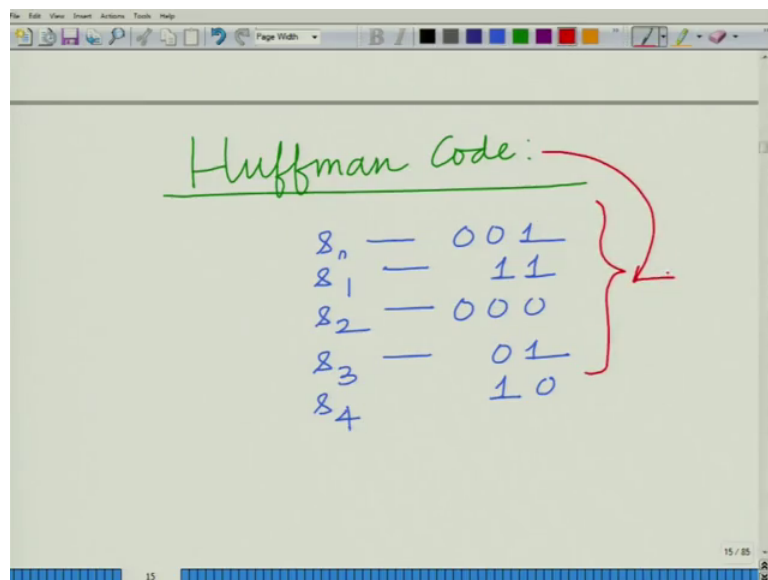 File Edit View Insert Actions Tools Help
Page Width
B I
Huffman Code:
s₀ — 001
s₁ — 11
s₂ — 000
s₃ — 01
s₄ 10
15 / 85
15